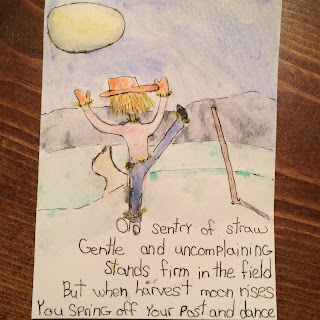 Old sentry of straw
Gentle and uncomplaining
stands firm in the field
But when harvest moon rises
You spring off your post and dance